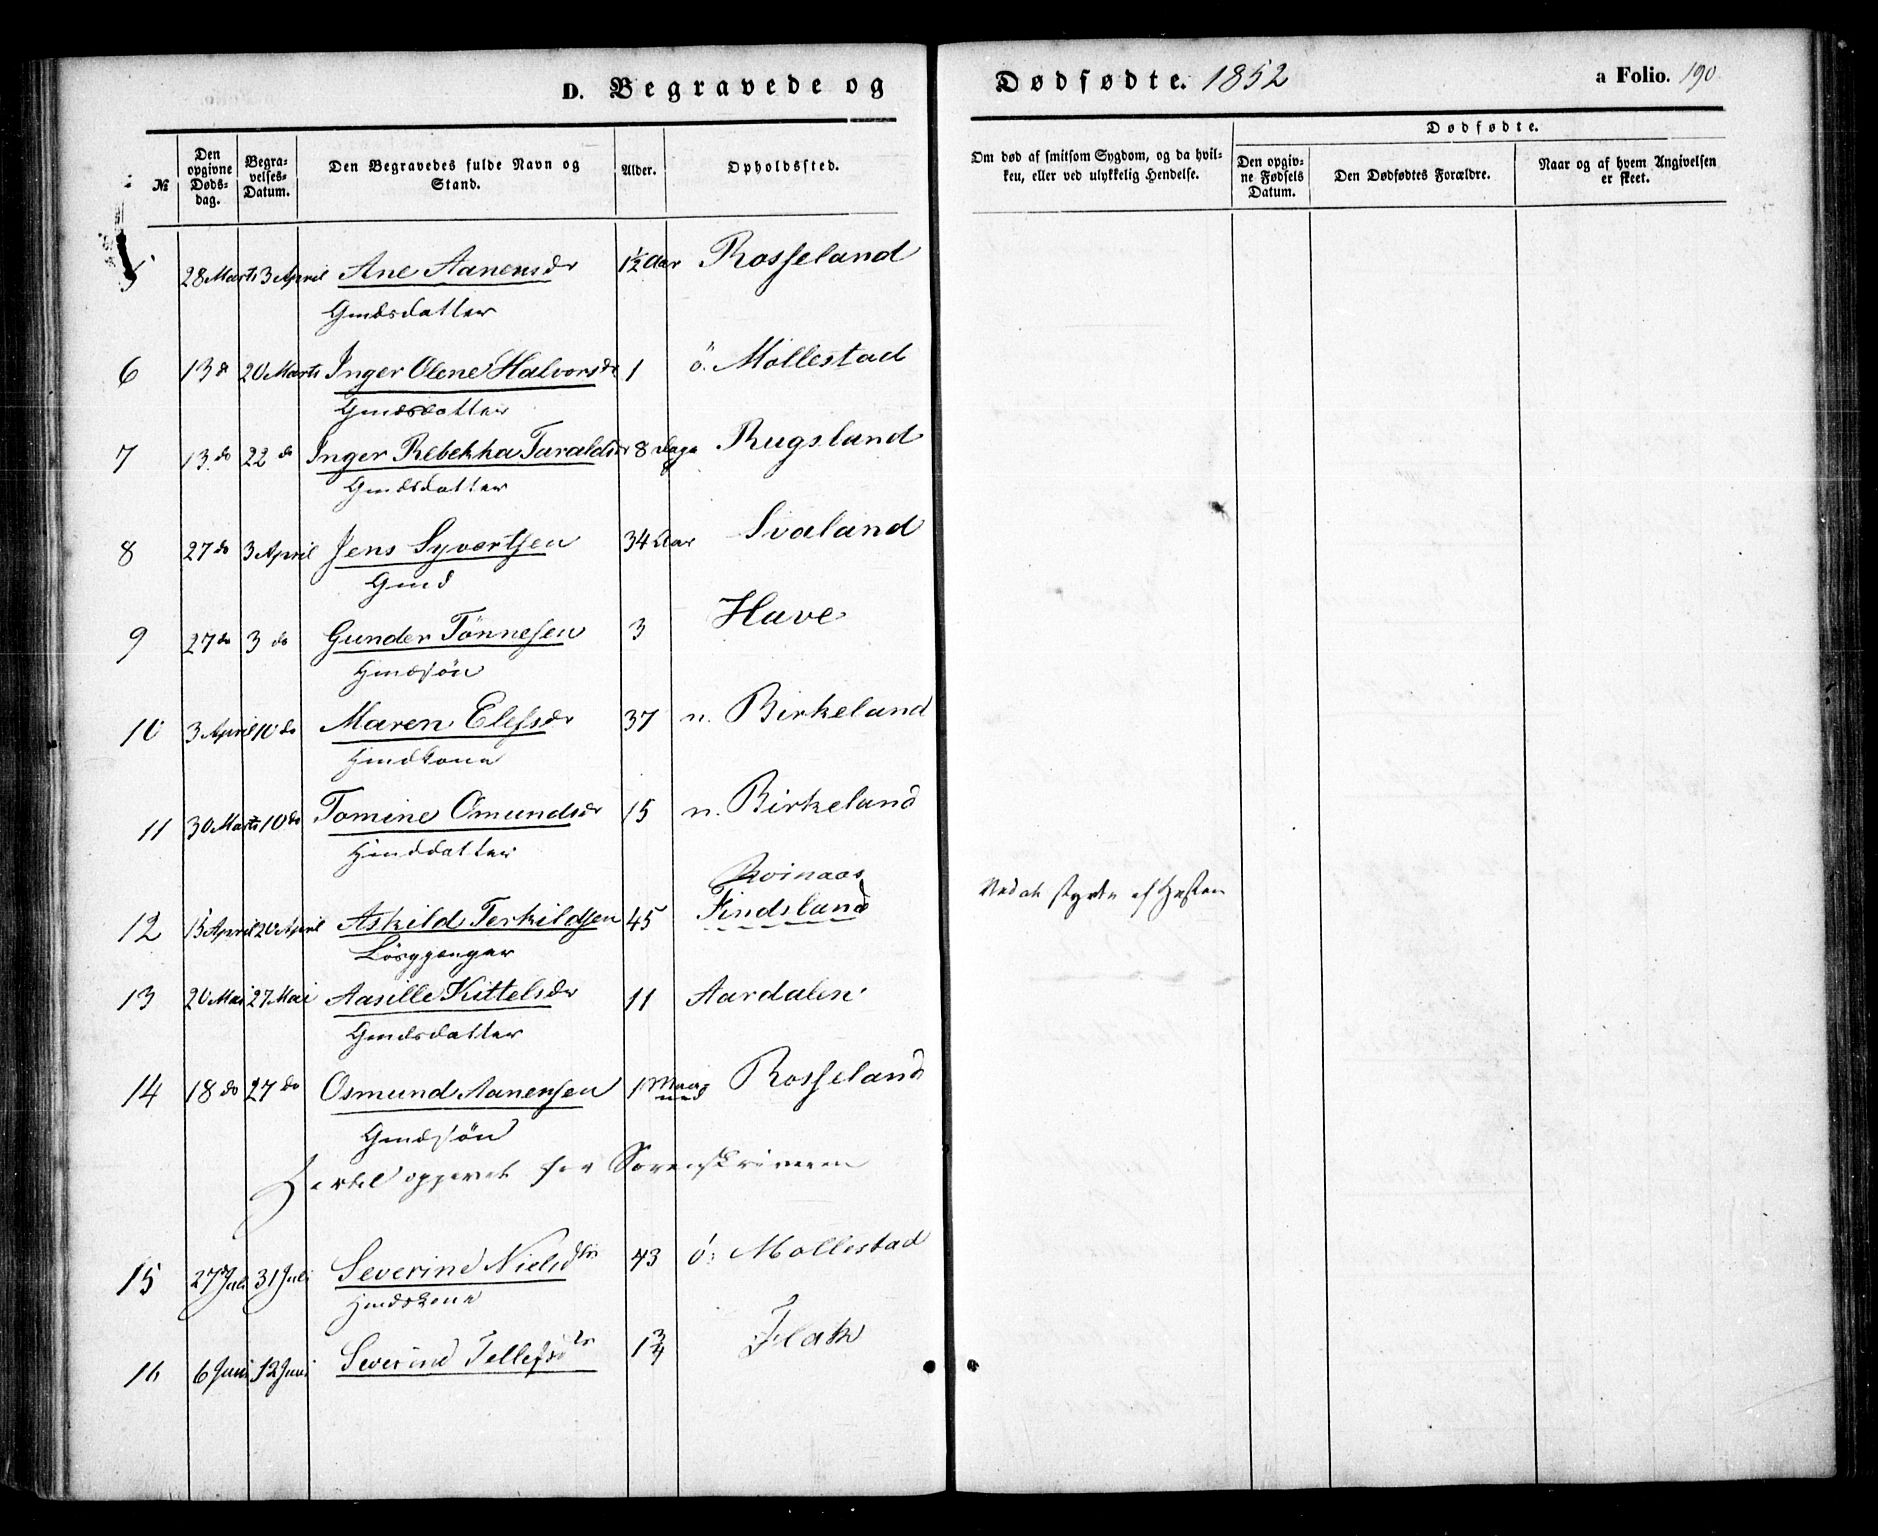 D. Begravede og Dødfødte. 1852
a Folio. 190
№
Den opgivne Døds-dag.
Begra-velses-Datum.
Den Begravedes fulde Navn og Stand.
Alder.
Opholdssted.
Om død af smitsom Sygdom, og da hvil-ken, eller ved ulykkelig Hendelse.
Dødfødte.
Den opgiv-ne Fødsels Datum.
Den Dødfødtes Forældre.
Naar og af hvem Angivelsen er skeet.
5 28 Marts 3 April Ane Aanensdr 1½ Aar Rosseland
Gmdsdatter
6 13 do 20 Marts Inger Olene Halvorsdr 1 ö. Mollestad
Gmdsdatter
7 13 do 22 do Inger Rebekka Taraldsdr 8 Dage Rugsland
Gmdsdatter
8 27 do 3 April Jens Syvertsen 34 Aar Svaland
Gmd
9 27 do 3 do Gunder Tönnesen 3 Have
Hmdsön
10 3 April 10 do Maren Elefsdr 37 n. Birkeland
Hmdkone
11 30 Marts 10 do Tomine Omundsdr 15 n. Birkeland
Hmddatter
Roinaas
12 15 April 20 April Askild Terkildsen 45 Findsland
af Hesten
Lösgjænger
13 20 Mai 27 Mai Aasille Kittelsdr 11 Aardalen
Gmdsdatter
14 18 do 27 do Osmund Aanensen 1 Maaned Rosseland
Gmdsön
Hertil opgivet for Sorenskriveren
15 27 Juli 31 Juli Severine Nielsdtr 43 ö. Mollestad
Hmdskone
16 6 Juni 12 Juni Severine Tellefsdtr 1¾ Flak